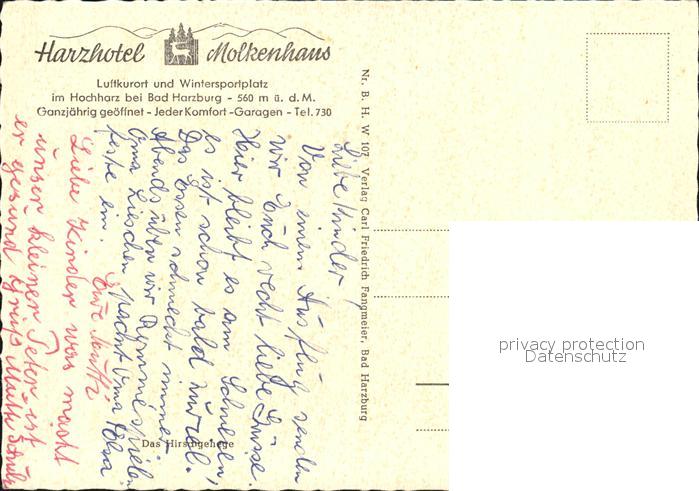 Harzhotel Molkenhaus
Luftkurort und Wintersportplatz
im Hochharz bei Bad Harzburg - 560 m ü. d. M.
Ganzjährig geöffnet - Jeder Komfort - Garagen - Tel. 730
Nr. B. H. W 107 Verlag Carl Friedrich Fangmeier, Bad Harzburg
Liebe Kinder,
Von einem Ausflug senden
wir Euch recht liebe Grüsse.
Hier bleibt es am Schneien,
es ist schon bald zuviel.
Das Essen schmeckt immer.
Abends üben wir Rommé spielen
Oma Lieschen macht Oma Elsa
feste ein.
Eure Mutti
Liebe Kinder was macht
unser kleiner Peter ist
er gesund Gruß Mutti
Das Hirschgehege
privacy protection
Datenschutz